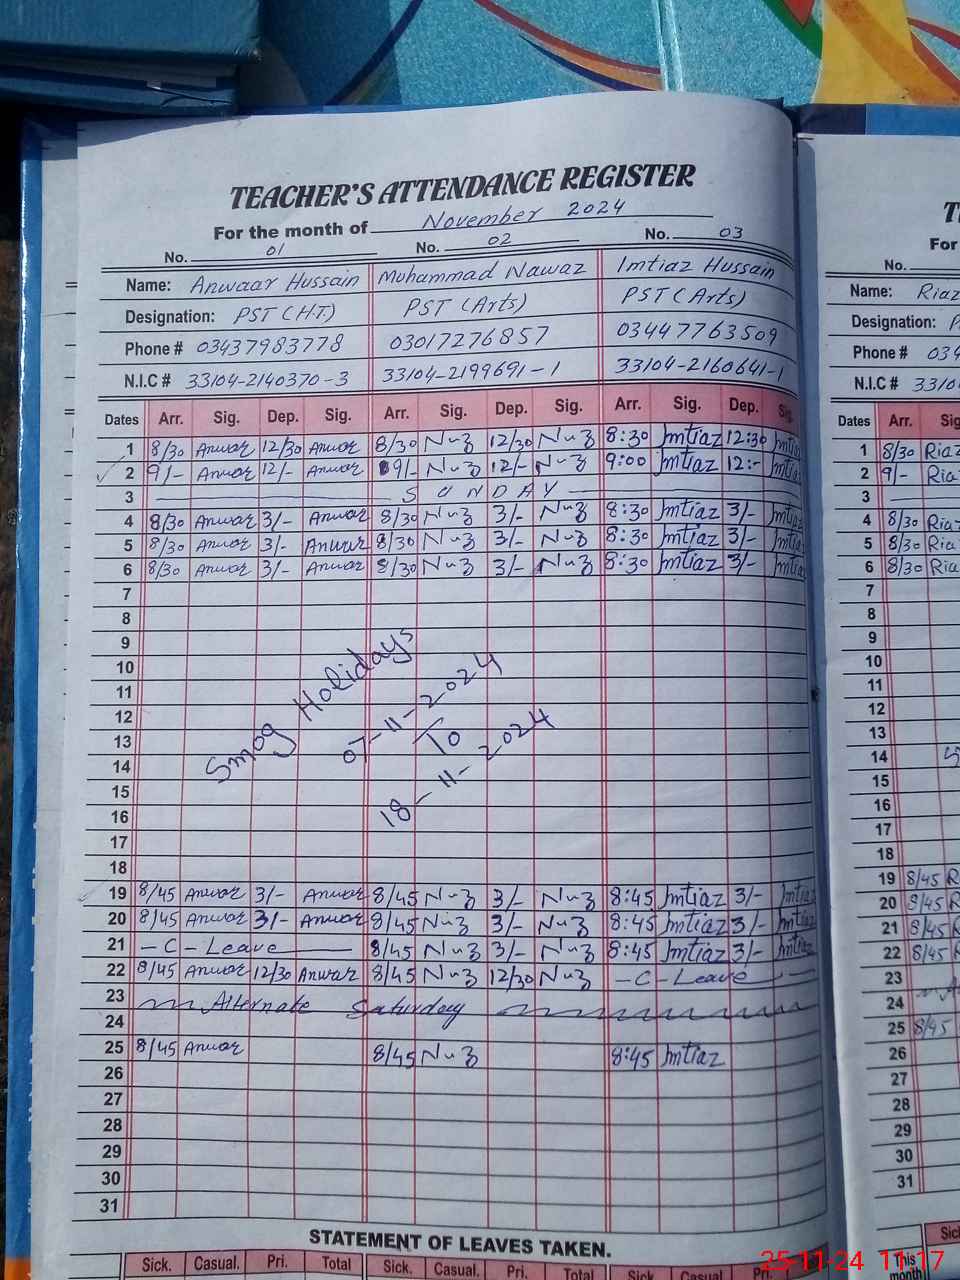 TEACHER'S ATTENDANCE REGISTER
For the month of November 2024
No. 01 No. 02 No. 03
Name: Anwaar Hussain Muhammad Nawaz Imtiaz Hussain
Designation: PST (H.T.) PST (Arts) PST (Arts)
Phone # 03437983778 03017276857 03447763509
N.I.C # 33104-2140370-3 33104-2199691-1 33104-2160641-1
Dates Arr. Sig. Dep. Sig. Arr. Sig. Dep. Sig. Arr. Sig. Dep. Sig.
1 8/30 Anwar 12/30 Anwar 8/30 Nuz 12/30 Nuz 8:30 Imtiaz 12:30 Imtiaz
2 9/- Anwar 12/- Anwar 9/- Nuz 12/- Nuz 9:00 Imtiaz 12:- Imtiaz
3 SUNDAY
4 8/30 Anwar 3/- Anwar 8/30 Nuz 3/- Nuz 8:30 Imtiaz 3/- Imtiaz
5 8/30 Anwar 3/- Anwar 8/30 Nuz 3/- Nuz 8:30 Imtiaz 3/- Imtiaz
6 8/30 Anwar 3/- Anwar 8/30 Nuz 3/- Nuz 8:30 Imtiaz 3/- Imtiaz
7
8
9
10
11
12
13
14
15
16
17
18
Smog Holidays
07-11-2024
To
18-11-2024
19 8/45 Anwar 3/- Anwar 8/45 Nuz 3/- Nuz 8:45 Imtiaz 3/- Imtiaz
20 8/45 Anwar 3/- Anwar 8/45 Nuz 3/- Nuz 8:45 Imtiaz 3/- Imtiaz
21 -C-Leave 8/45 Nuz 3/- Nuz 8:45 Imtiaz 3/- Imtiaz
22 8/45 Anwar 12/30 Anwar 8/45 Nuz 12/30 Nuz -C-Leave
23 Alternate Saturday
24
25 8/45 Anwar 8/45 Nuz 8:45 Imtiaz
26
27
28
29
30
31
STATEMENT OF LEAVES TAKEN.
Sick. Casual. Pri. Total Sick. Casual. Pri. Total Sick. Casual. Pri.
For
No.
Name: Riaz
Designation:
Phone # 034
N.I.C # 3310
Dates Arr.
1 8/30 Ria
2 9/- Ria
3
4 8/30 Ria
5 8/30 Ria
6 8/30 Ria
7
8
9
10
11
12
13
14
15
16
17
18
19 8/45 R
20 8/45
21 8/45
22 8/45
23
24
25 8/45
26
27
28
29
30
31
This month
25-11-24 11:17